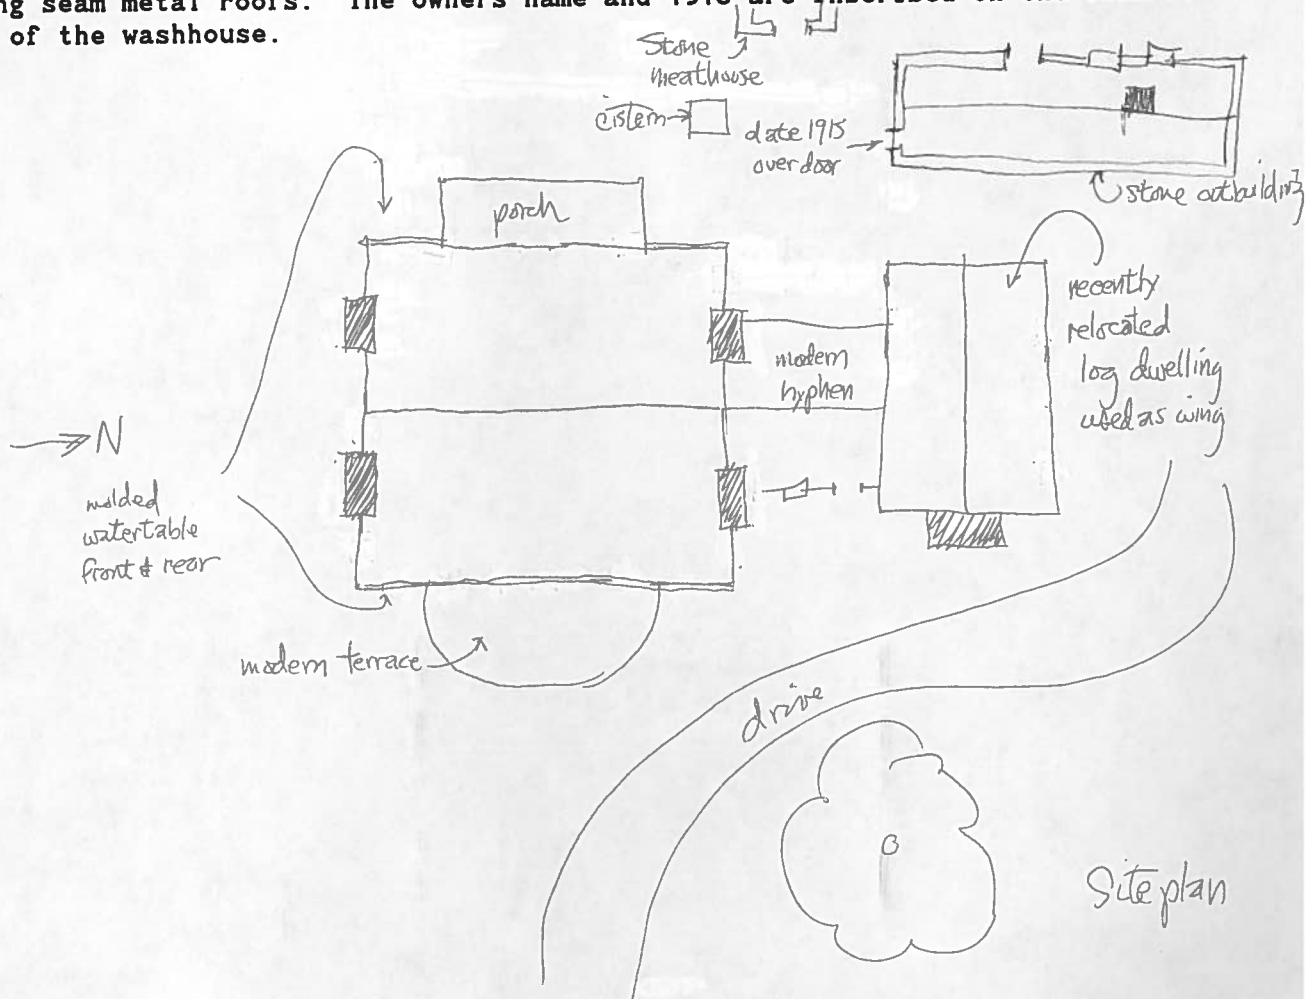 ng seam metal roofs. The owners name and 1915 are inscribed on the
of the washhouse.
Stone
meathouse
cistern
date 1915
over door
stone outbuilding
porch
recently
relocated
log dwelling
used as wing
modern
hyphen
N
molded
watertable
front & rear
modern terrace
drive
Site plan